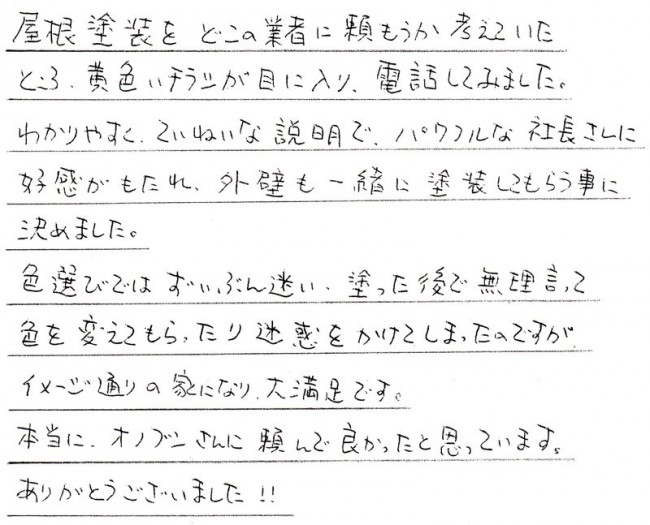 屋根塗装を どこの業者に頼もうか考えていた
ところ、黄色いチラシが目に入り、電話してみました。
わかりやすく、ていねいな説明で、パワフルな社長さんに
好感がもたれ、外壁も一緒に塗装してもらう事に
決めました。
色選びではずいぶん迷い、塗った後で無理言って
色を変えてもらったり迷惑をかけてしまったのですが
イメージ通りの家になり、大満足です。
本当に、オノブンさんに頼んで良かったと思っています。
ありがとうございました!!